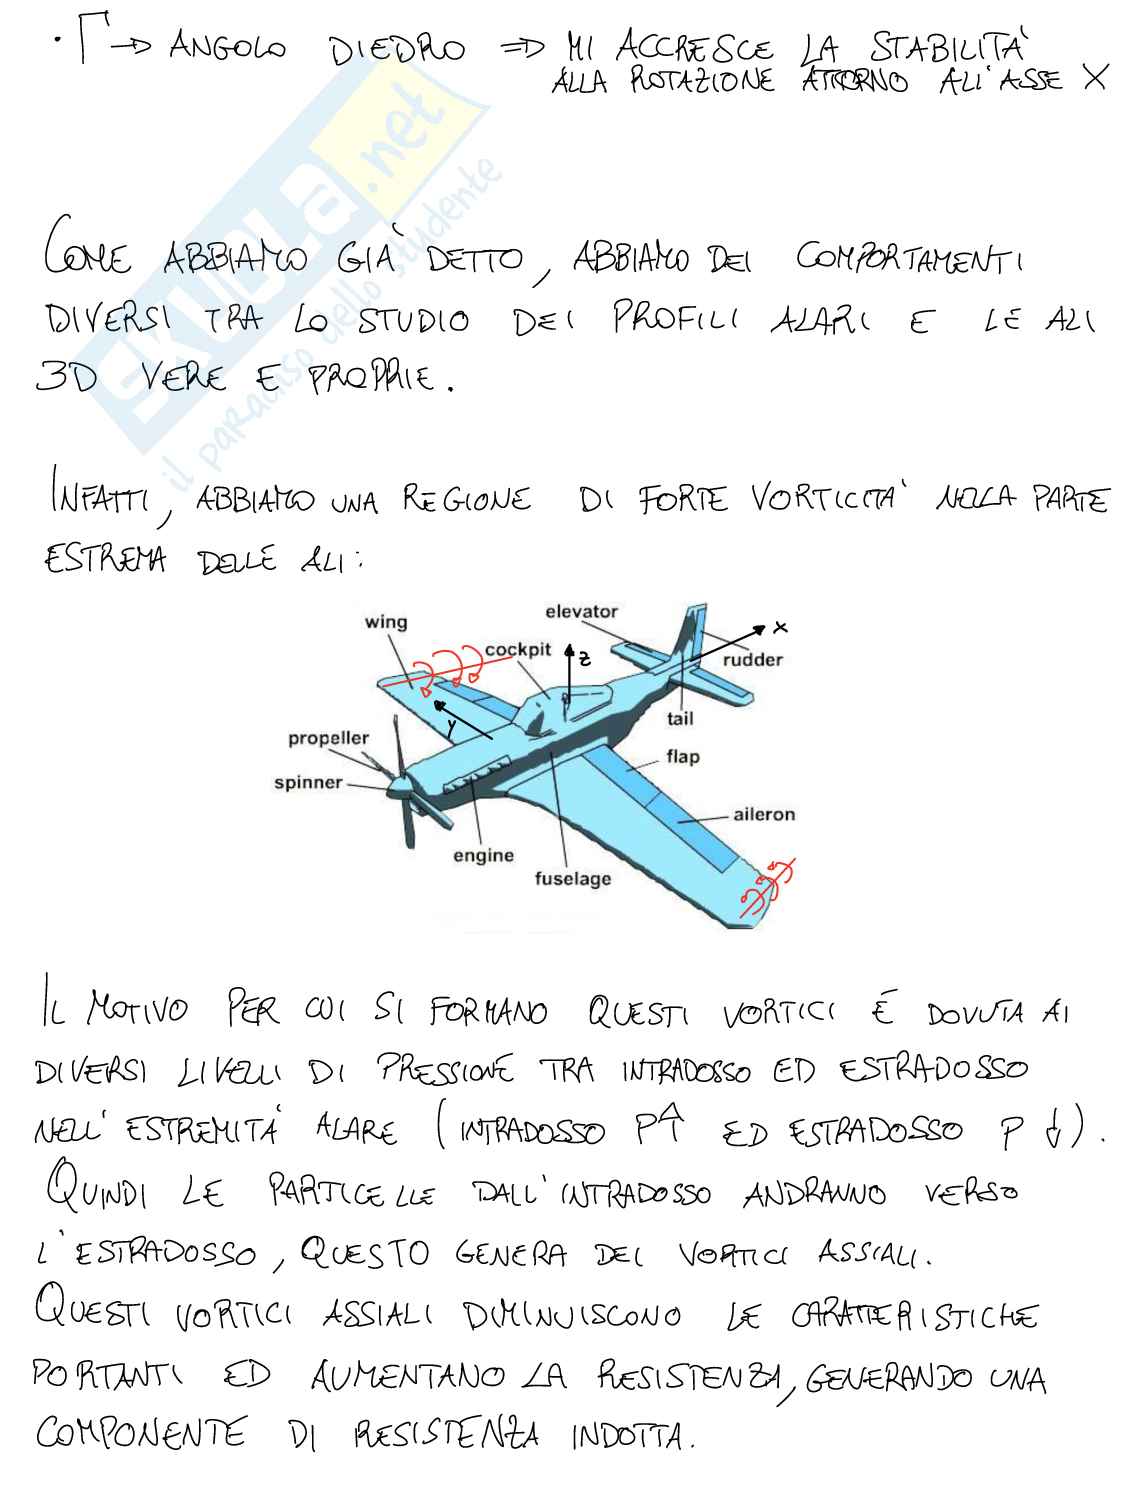 · Γ → ANGOLO DIEDRO ⇒ MI ACCRESCE LA STABILITÀ
ALLA ROTAZIONE ATTORNO ALL'ASSE X
SKUOLA.net
il paradiso dello studente
COME ABBIAMO GIÀ DETTO, ABBIAMO DEI COMPORTAMENTI
DIVERSI TRA LO STUDIO DEI PROFILI ALARI E LE ALI
3D VERE E PROPRIE.
INFATTI, ABBIAMO UNA REGIONE DI FORTE VORTICITA' NELLA PARTE
ESTREMA DELLE ALI:
elevator
wing
x
cockpit
z
rudder
tail
y
propeller
flap
spinner
aileron
engine
fuselage
IL MOTIVO PER CUI SI FORMANO QUESTI VORTICI É DOVUTA AI
DIVERSI LIVELLI DI PRESSIONE TRA INTRADOSSO ED ESTRADOSSO
NELL'ESTREMITA' ALARE (INTRADOSSO P↑ ED ESTRADOSSO P↓).
QUINDI LE PARTICELLE DALL'INTRADOSSO ANDRANNO VERSO
L'ESTRADOSSO, QUESTO GENERA DEI VORTICI ASSIALI.
QUESTI VORTICI ASSIALI DIMINUISCONO LE CARATTERISTICHE
PORTANTI ED AUMENTANO LA RESISTENZA, GENERANDO UNA
COMPONENTE DI RESISTENZA INDOTTA.